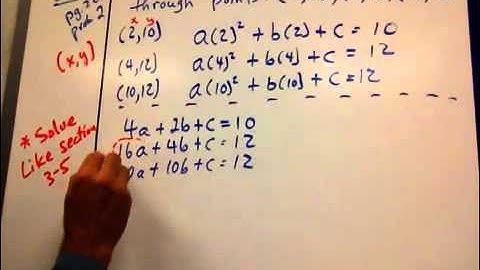 pg.
prob 2
through points
x y
(2,10) a(2)² + b(2) + c = 10
(x,y)
(4,12) a(4)² + b(4) + c = 12
(10,12) a(10)² + b(10) + c = 12
* Solve
Like section
3-5
4a + 2b + c = 10
16a + 4b + c = 12
a + 10b + c = 12